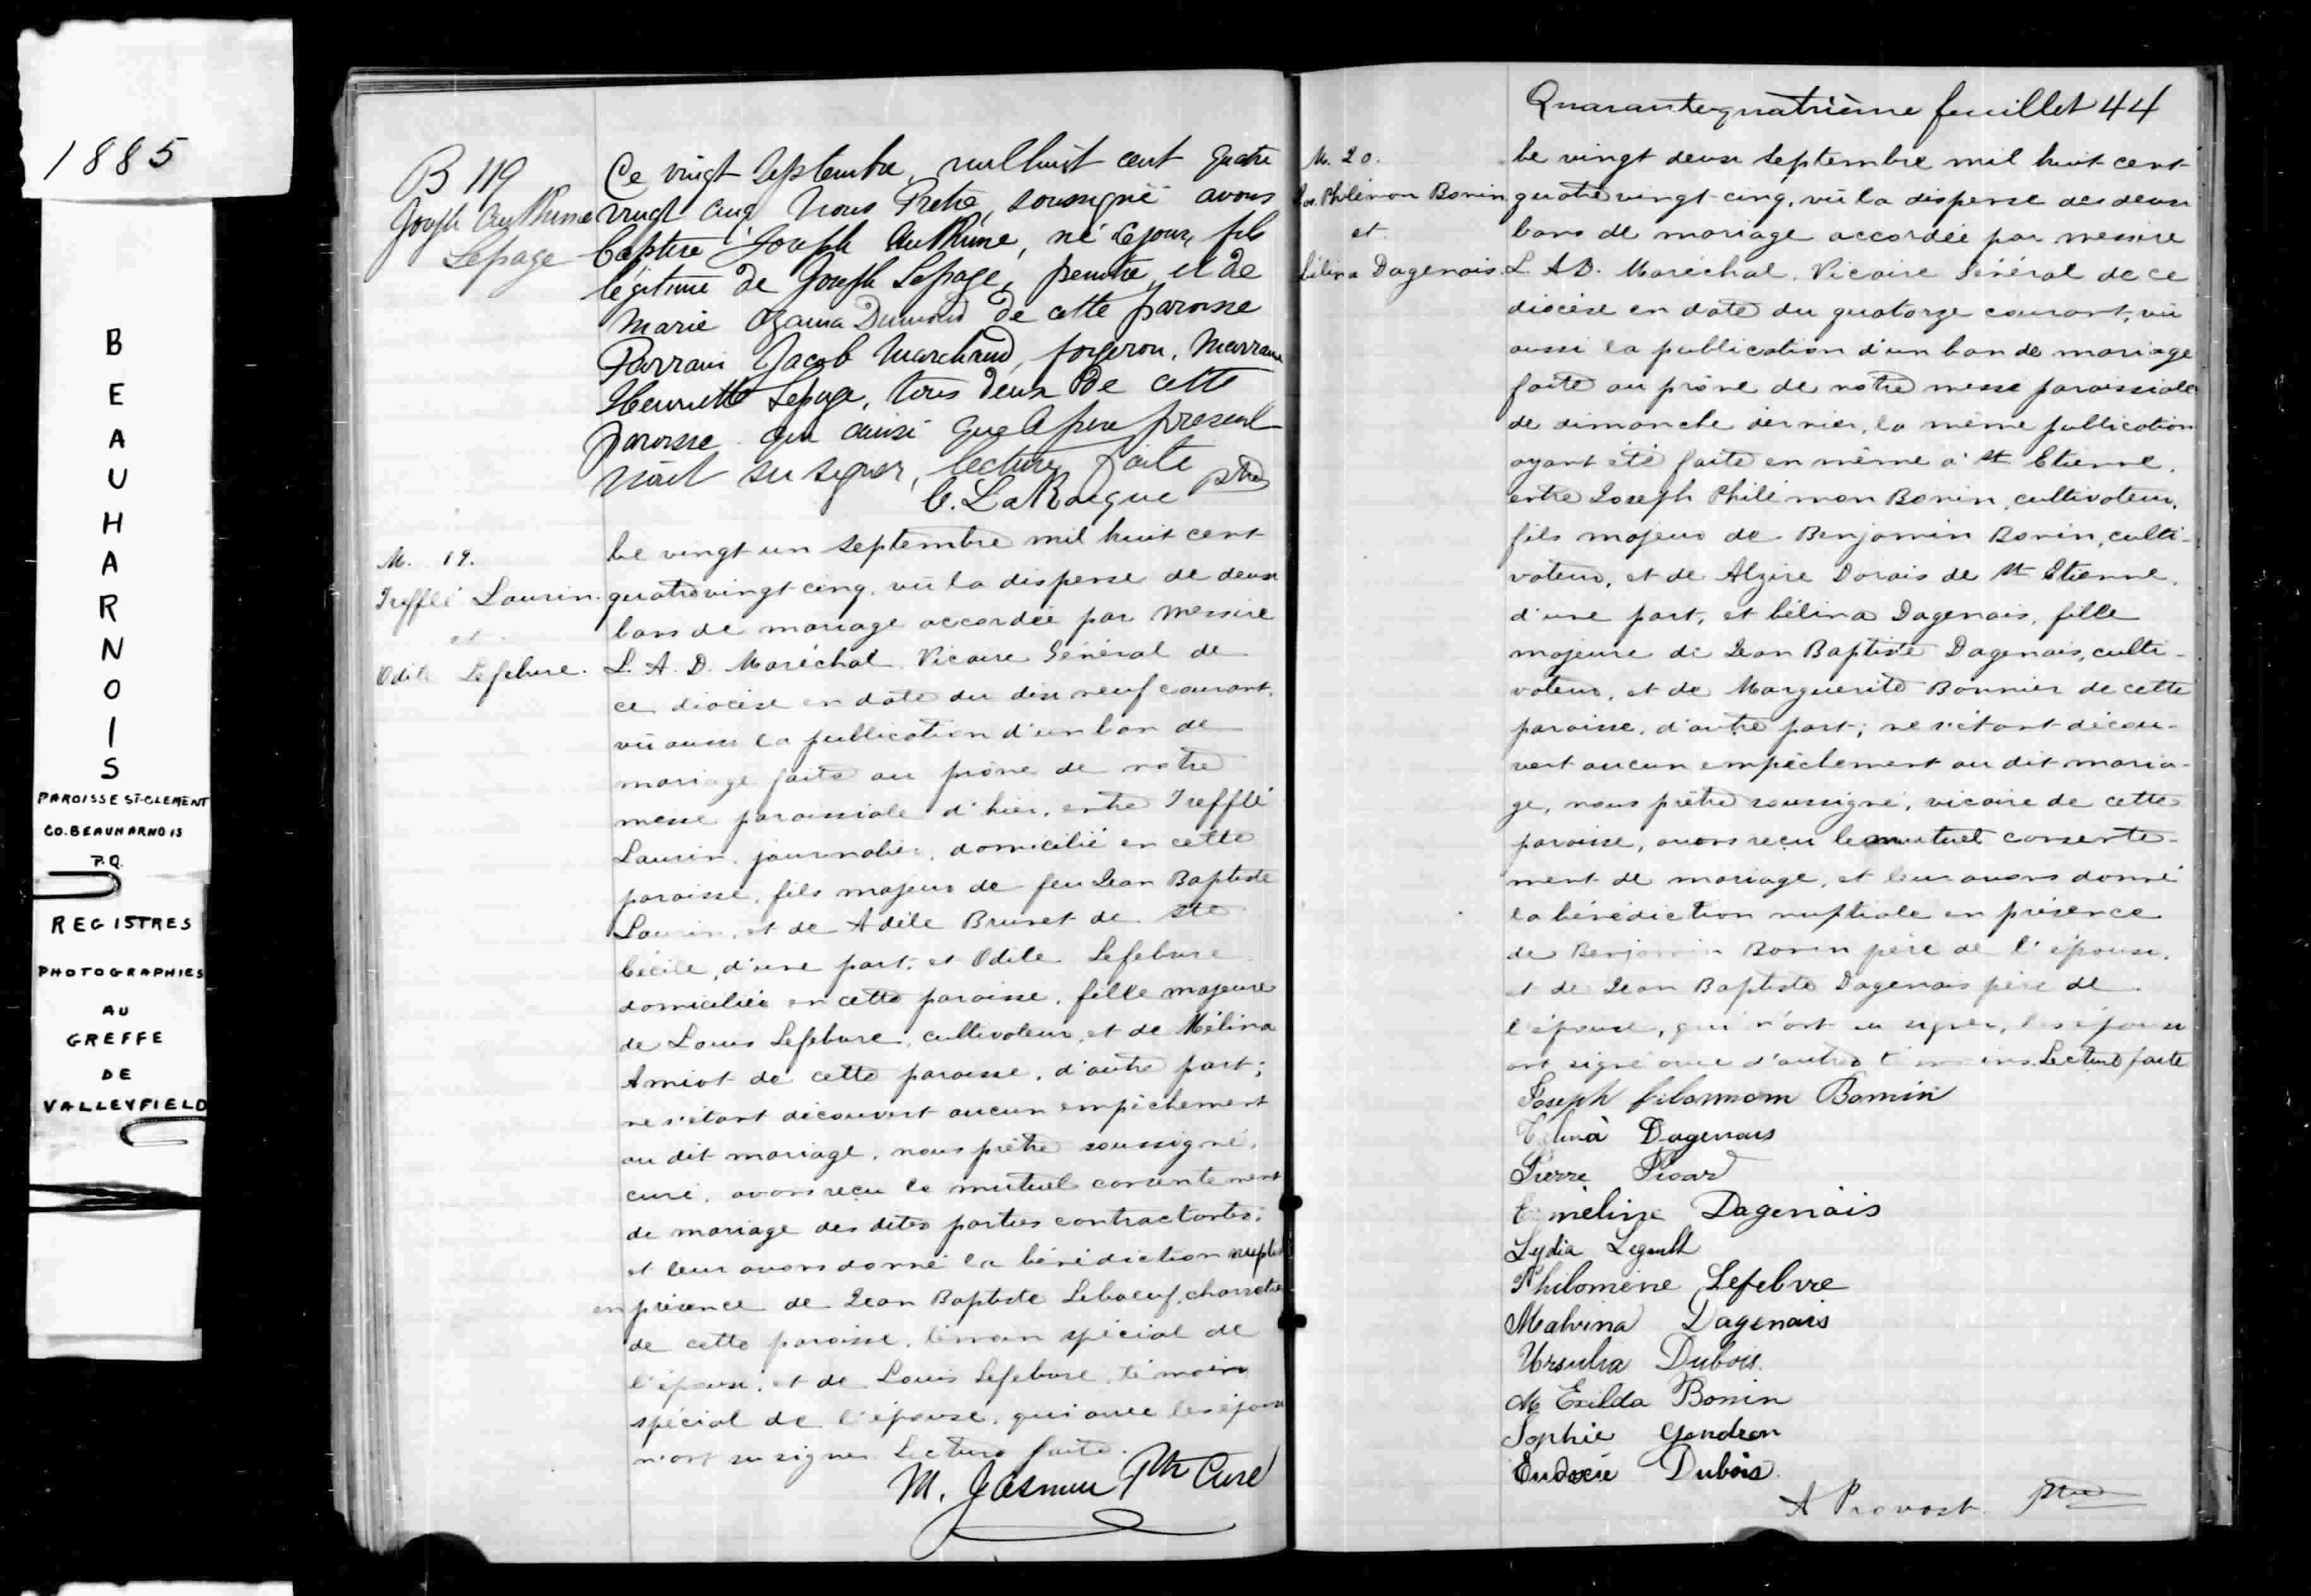 1885
BEAUHARNOIS
PAROISSE ST-CLEMENT
CO. BEAUHARNOIS
P.Q.
REGISTRES
PHOTOGRAPHIES
AU
GREFFE
DE
VALLEYFIELD
B 119
Joseph Anthime
Lepage
Ce vingt Septembre, mil huit cent quatre
vingt cinq Nous Prêtre, soussigné avons
baptisé Joseph Anthime, né ce jour, fils
légitime de Joseph Lepage, peintre, et de
Marie Ozama Dumond de cette paroisse
Parrain Jacob Marchand, forgeron, Marraine
Henriette Lepage, tous deux de cette
paroisse qui ainsi que le père présent
n'ont su signer, lecture faite
C. LaRocque ptre
M. 19.
Trefflé Laurin
et
Odile Lefebvre.
Le vingt un septembre mil huit cent
quatrevingt cinq, vû la dispense de deux
bans de mariage accordée par messire
L. A. D. Maréchal, Vicaire Général de
ce diocèse en date du dix neuf courant,
vû aussi la publication d'un ban de
mariage faite au prône de notre
messe paroissiale d'hier, entre Trefflé
Laurin, journalier, domicilié en cette
paroisse, fils majeur de feu Jean Baptiste
Laurin, et de Adèle Brunet de Ste
Cécile, d'une part; et Odile Lefebvre
domiciliée en cette paroisse, fille majeure
de Louis Lefebvre, cultivateur, et de Mélina
Amiot de cette paroisse, d'autre part;
ne s'étant découvert aucun empêchement
au dit mariage, nous prêtre soussigné,
curé, avons reçu le mutuel consentement
de mariage des dites parties contractantes,
et leur avons donné la bénédiction nuptiale
en présence de Jean Baptiste Leboeuf, charretier
de cette paroisse, témoin spécial de
l'époux, et de Louis Lefebvre, témoin
spécial de l'épouse, qui avec les époux
n'ont su signer. Lecture faite.
M. Jasmin Ptre Curé
Quarantequatrième feuillet 44
M. 20.
Jos. Philémon Bonin
et
Célina Dagenais.
Le vingt deux septembre mil huit cent
quatrevingt-cinq, vû la dispense des deux
bans de mariage accordée par messire
L. A D. Maréchal, Vicaire Général de ce
diocèse en date du quatorze courant, vû
aussi la publication d'un ban de mariage
faite au prône de notre messe paroissiale
de dimanche dernier, la même publication
ayant été faite en même à St Etienne,
entre Joseph Philémon Bonin, cultivateur,
fils majeur de Benjamin Bonin, culti-
vateur, et de Alzire Dorais de St Etienne,
d'une part, et Célina Dagenais, fille
majeure de Jean Baptiste Dagenais, culti-
vateur, et de Marguerite Bonnier de cette
paroisse, d'autre part; ne s'étant décou-
vert aucun empêchement au dit maria-
ge, nous prêtre soussigné, vicaire de cette
paroisse, avons reçu le mutuel consente-
ment de mariage, et leur avons donné
la bénédiction nuptiale en présence
de Benjamin Bonin père de l'époux,
et de Jean Baptiste Dagenais père de
l'épouse, qui n'ont su signer, les époux
ont signé avec d'autres témoins. Lecture faite
Joseph filommom Bomin
Célina Dagenais
Pierre Picard
Émeline Dagenais
Lydia Legault
Philomène Lefebvre
Malvina Dagenais
Ursulia Dubois.
M Exilda Bonin
Sophie Gendron
Eudoxie Dubois.
A Provost ptre